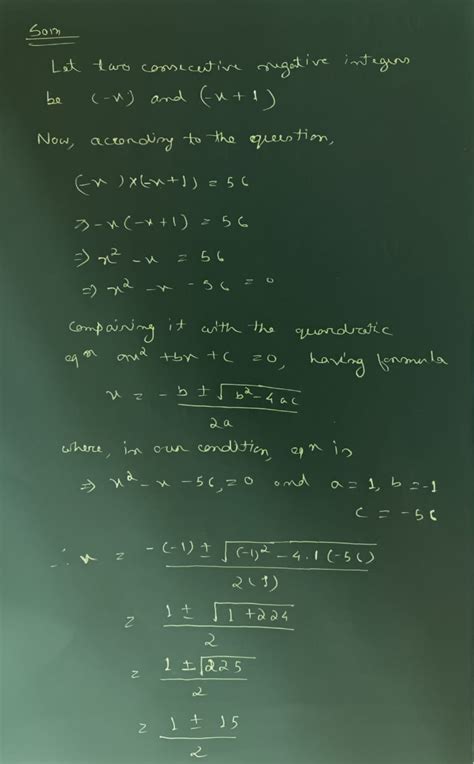 Som
Let two consecutive negative integers
be (-x) and (-x+1)
Now, according to the question,
(-x)×(-x+1) = 56
⇒ -x(-x+1) = 56
⇒ x² - x = 56
⇒ x² - x - 56 = 0
Compairing it with the quardratic
eqn ax² + bx + c = 0, having formula
x = - b ± √b²-4ac / 2a
where, in our condition, eqn is
⇒ x² - x - 56, = 0 and a = 1, b = -1
c = -56
∴ x = -(-1) ± √(-1)² - 4.1(-56) / 2(1)
= 1 ± √1+224 / 2
= 1 ± √225 / 2
= 1 ± 15 / 2